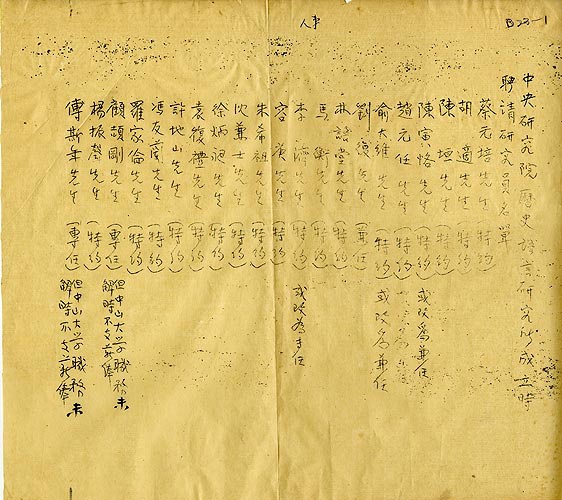 B23-1
人事
中央研究院歷史語言研究所成立時
聘請研究員名單
蔡元培先生 (特約)
胡適先生 (特約)
陳垣先生 (特約)
陳寅恪先生 (特約) 或改為兼任
趙元任先生 (特約)
俞大維先生 (特約) 或改為兼任
劉復先生 (兼任)
林語堂先生 (特約)
馬衡先生 (特約)
李濟先生 (特約) 或改為專任
容庚先生 (特約)
朱希祖先生 (特約)
沈兼士先生 (特約)
徐炳昶先生 (特約)
袁復禮先生 (特約)
許地山先生 (特約)
馮友蘭先生 (特約)
羅家倫先生 (特約)
顧頡剛先生 (專任) 但中山大學職務未
解時不支薪俸
楊振聲先生 (特約)
傅斯年先生 (專任) 但中山大學職務未
解時不支薪俸